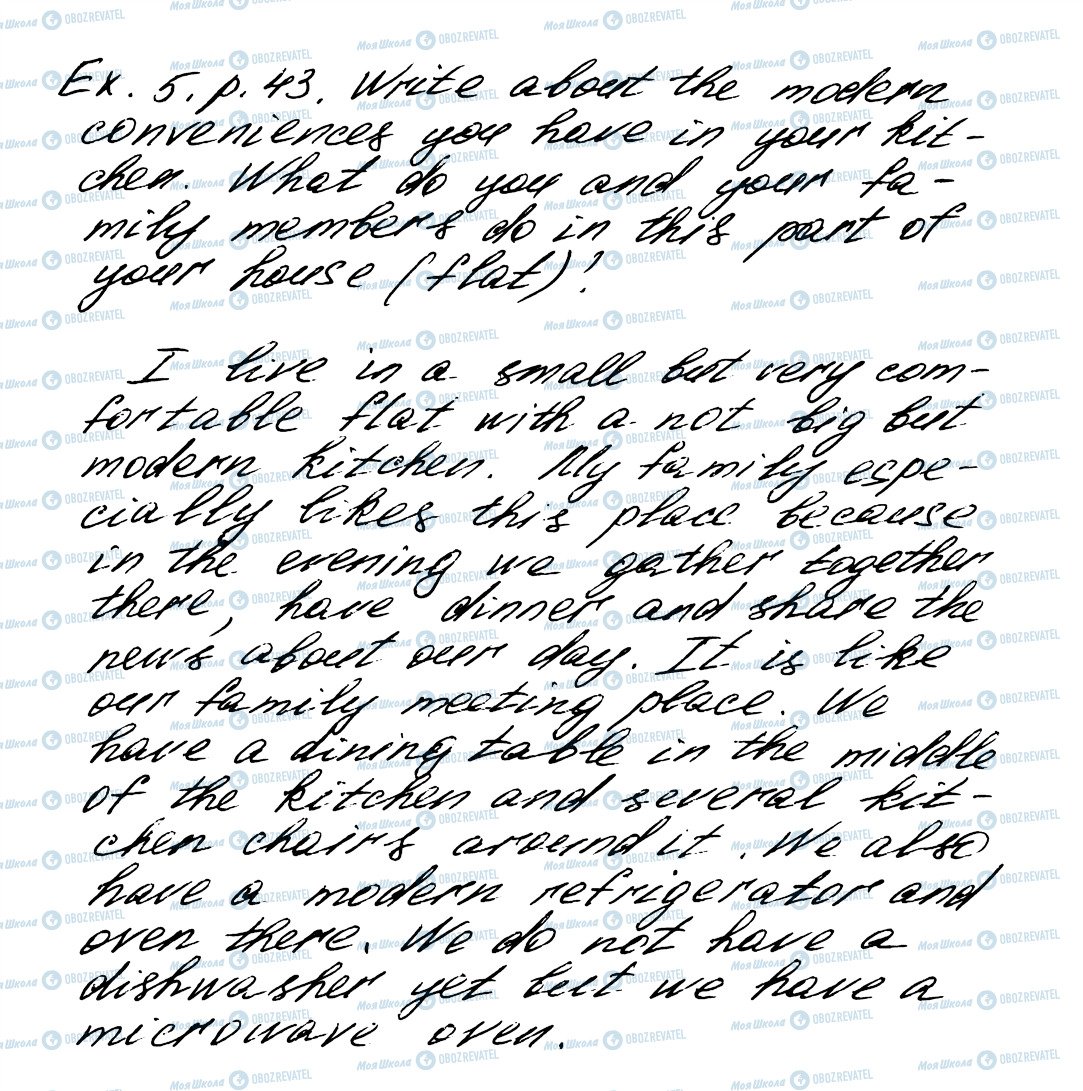 Ex. 5. p. 43. Write about the modern
conveniences you have in your kit-
chen. What do you and your fa-
mily members do in this part of
your house (flat)?
I live in a small but very com-
fortable flat with a not big but
modern kitchen. My family espe-
cially likes this place because
in the evening we gather together
there, have dinner and share the
news about our day. It is like
our family meeting place. We
have a dining table in the middle
of the kitchen and several kit-
chen chairs around it. We also
have a modern refrigerator and
oven there. We do not have a
dishwasher yet but we have a
microwave oven.
МояШкола OBOZREVATEL